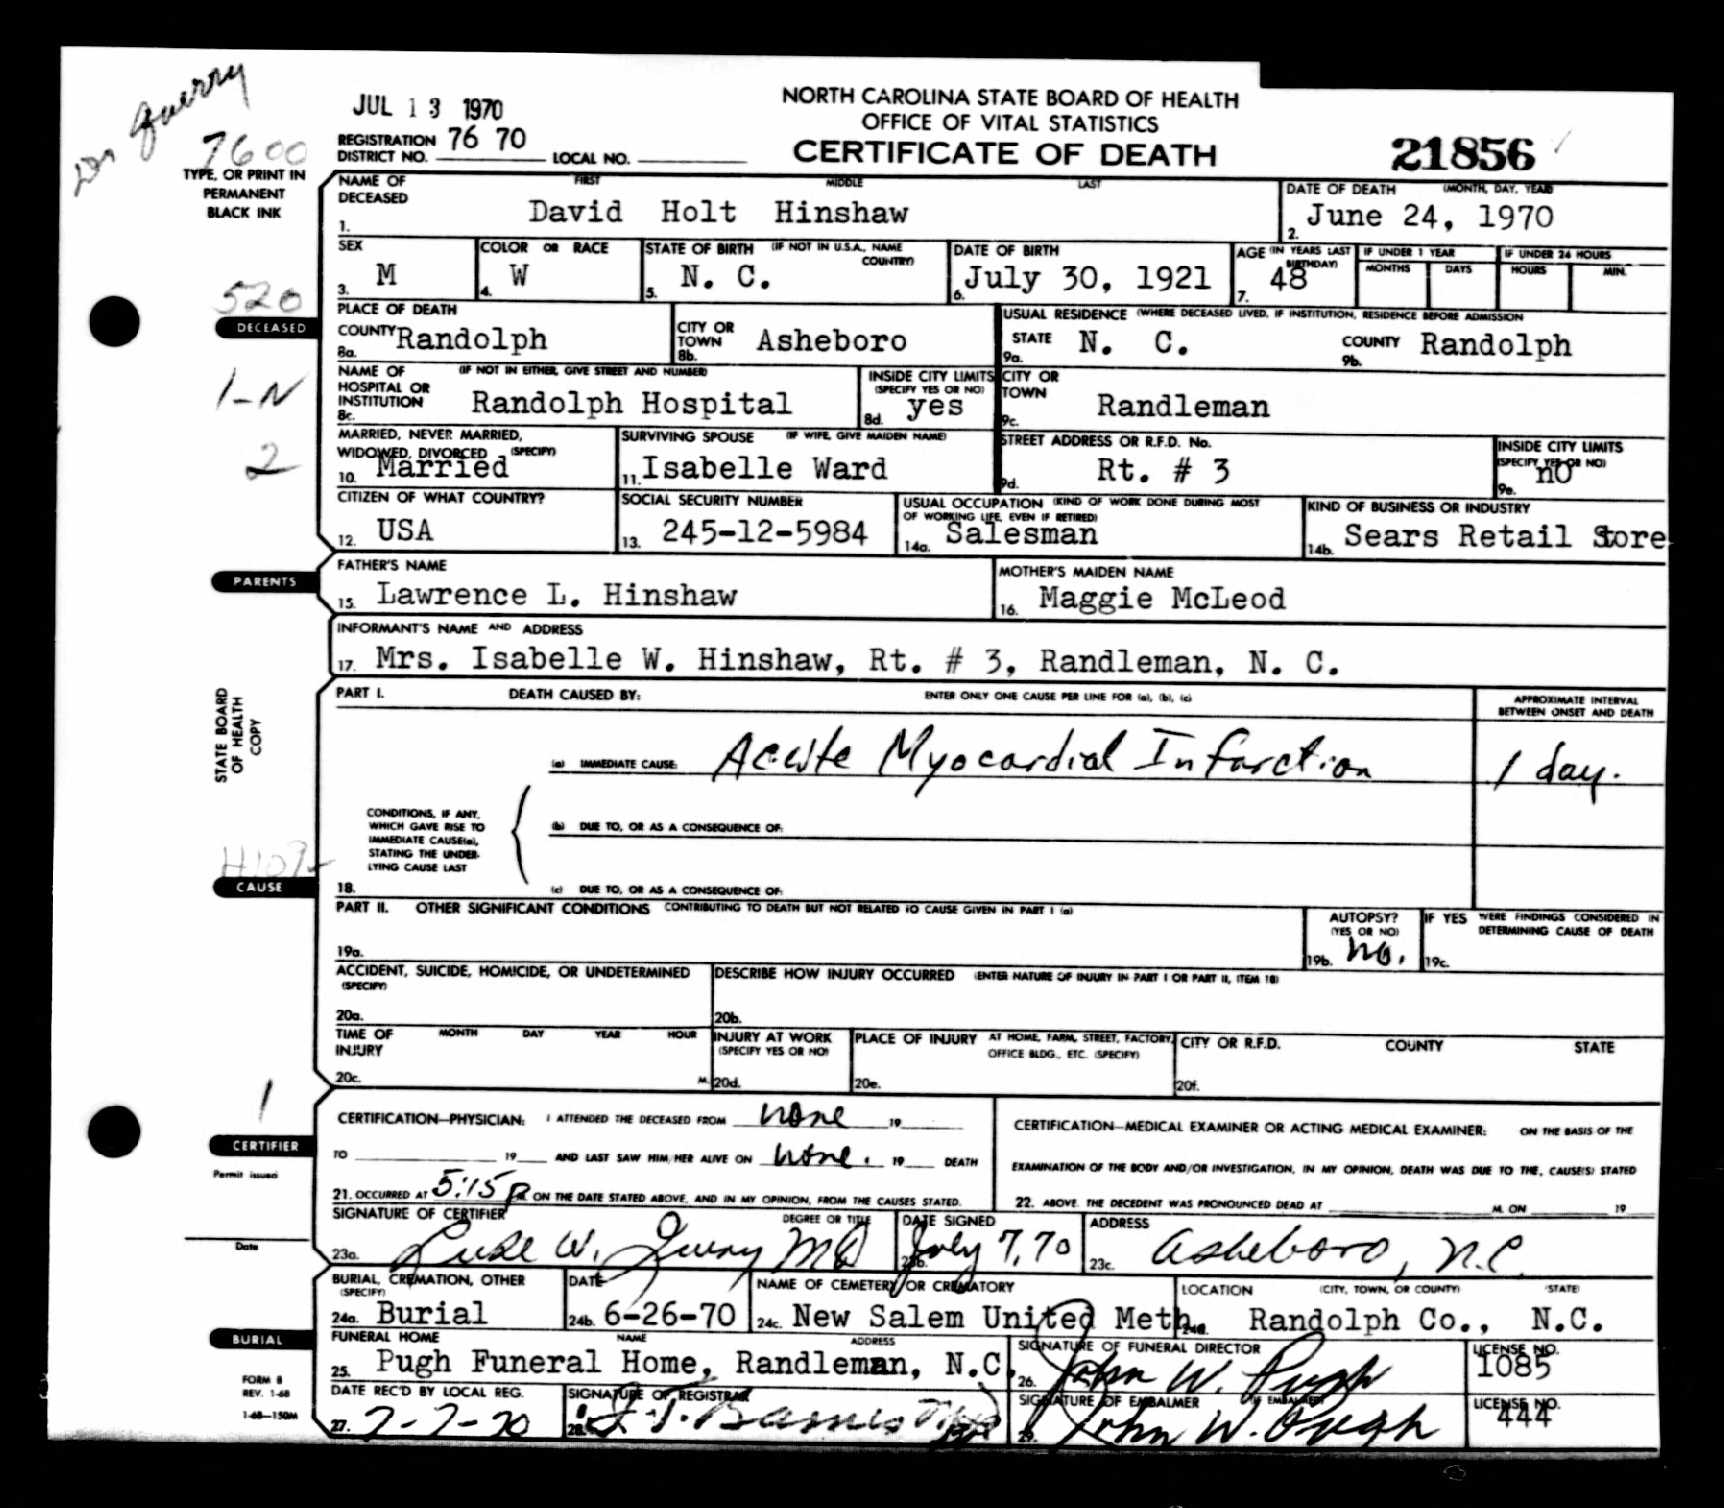 Dr Querry
7600
JUL 13 1970
REGISTRATION DISTRICT NO. 76 70 LOCAL NO.
NORTH CAROLINA STATE BOARD OF HEALTH
OFFICE OF VITAL STATISTICS
CERTIFICATE OF DEATH
21856
TYPE, OR PRINT IN
PERMANENT
BLACK INK
NAME OF DECEASED FIRST MIDDLE LAST
1. David Holt Hinshaw
DATE OF DEATH (MONTH, DAY, YEAR)
2. June 24, 1970
SEX
3. M
COLOR OR RACE
4. W
STATE OF BIRTH (IF NOT IN U.S.A., NAME COUNTRY)
5. N. C.
DATE OF BIRTH
6. July 30, 1921
AGE (IN YEARS LAST BIRTHDAY)
7. 48
IF UNDER 1 YEAR
MONTHS DAYS
IF UNDER 24 HOURS
HOURS MIN.
520
DECEASED
PLACE OF DEATH
COUNTY
8a. Randolph
CITY OR TOWN
8b. Asheboro
USUAL RESIDENCE (WHERE DECEASED LIVED, IF INSTITUTION, RESIDENCE BEFORE ADMISSION
STATE
9a. N. C.
COUNTY
9b. Randolph
1-N
NAME OF HOSPITAL OR INSTITUTION (IF NOT IN EITHER, GIVE STREET AND NUMBER)
8c. Randolph Hospital
INSIDE CITY LIMITS (SPECIFY YES OR NO)
8d. yes
CITY OR TOWN
9c. Randleman
2
MARRIED, NEVER MARRIED, WIDOWED, DIVORCED (SPECIFY)
10. Married
SURVIVING SPOUSE (IF WIFE, GIVE MAIDEN NAME)
11. Isabelle Ward
STREET ADDRESS OR R.F.D. No.
9d. Rt. # 3
INSIDE CITY LIMITS (SPECIFY YES OR NO)
9e. no
CITIZEN OF WHAT COUNTRY?
12. USA
SOCIAL SECURITY NUMBER
13. 245-12-5984
USUAL OCCUPATION (KIND OF WORK DONE DURING MOST OF WORKING LIFE, EVEN IF RETIRED)
14a. Salesman
KIND OF BUSINESS OR INDUSTRY
14b. Sears Retail Store
PARENTS
FATHER'S NAME
15. Lawrence L. Hinshaw
MOTHER'S MAIDEN NAME
16. Maggie McLeod
INFORMANT'S NAME AND ADDRESS
17. Mrs. Isabelle W. Hinshaw, Rt. # 3, Randleman, N. C.
STATE BOARD
OF HEALTH
COPY
PART I. DEATH CAUSED BY: ENTER ONLY ONE CAUSE PER LINE FOR (a), (b), (c)
APPROXIMATE INTERVAL
BETWEEN ONSET AND DEATH
(a) IMMEDIATE CAUSE: Acute Myocardial Infarction 1 day.
CONDITIONS, IF ANY,
WHICH GAVE RISE TO
IMMEDIATE CAUSE(a),
STATING THE UNDER-
LYING CAUSE LAST
(b) DUE TO, OR AS A CONSEQUENCE OF:
CAUSE
18. (c) DUE TO, OR AS A CONSEQUENCE OF:
PART II. OTHER SIGNIFICANT CONDITIONS CONTRIBUTING TO DEATH BUT NOT RELATED TO CAUSE GIVEN IN PART I (a)
19a.
AUTOPSY? (YES OR NO)
19b. no.
IF YES WERE FINDINGS CONSIDERED IN DETERMINING CAUSE OF DEATH
19c.
ACCIDENT, SUICIDE, HOMICIDE, OR UNDETERMINED (SPECIFY)
20a.
DESCRIBE HOW INJURY OCCURRED (ENTER NATURE OF INJURY IN PART I OR PART II, ITEM 18)
20b.
TIME OF INJURY MONTH DAY YEAR HOUR
20c. M.
INJURY AT WORK (SPECIFY YES OR NO)
20d.
PLACE OF INJURY AT HOME, FARM, STREET, FACTORY, OFFICE BLDG., ETC. (SPECIFY)
20e.
CITY OR R.F.D. COUNTY STATE
20f.
1
CERTIFIER
Permit issued
Date
CERTIFICATION—PHYSICIAN: I ATTENDED THE DECEASED FROM none 19
TO 19 AND LAST SAW HIM/HER ALIVE ON none. 19 DEATH
21. OCCURRED AT 5:15 P M. ON THE DATE STATED ABOVE, AND IN MY OPINION, FROM THE CAUSES STATED.
CERTIFICATION—MEDICAL EXAMINER OR ACTING MEDICAL EXAMINER: ON THE BASIS OF THE
EXAMINATION OF THE BODY AND/OR INVESTIGATION, IN MY OPINION, DEATH WAS DUE TO THE, CAUSE(S) STATED
22. ABOVE. THE DECEDENT WAS PRONOUNCED DEAD AT M. ON 19
SIGNATURE OF CERTIFIER DEGREE OR TITLE
23a. Luke W. Querry MD
DATE SIGNED
23b. July 7, 70
ADDRESS
23c. Asheboro, N.C.
BURIAL, CREMATION, OTHER (SPECIFY)
24a. Burial
DATE
24b. 6-26-70
NAME OF CEMETERY OR CREMATORY
24c. New Salem United Meth.
LOCATION (CITY, TOWN, OR COUNTY) (STATE)
24d. Randolph Co., N.C.
BURIAL
FUNERAL HOME NAME ADDRESS
25. Pugh Funeral Home, Randleman, N.C.
SIGNATURE OF FUNERAL DIRECTOR
26. John W. Pugh
LICENSE NO.
1085
FORM 8
REV. 1-68
1-68—150M
DATE REC'D BY LOCAL REG.
27. 7-7-70
SIGNATURE OF REGISTRAR
28.
SIGNATURE OF EMBALMER (IF EMBALMED)
29. John W. Pugh
LICENSE NO.
444